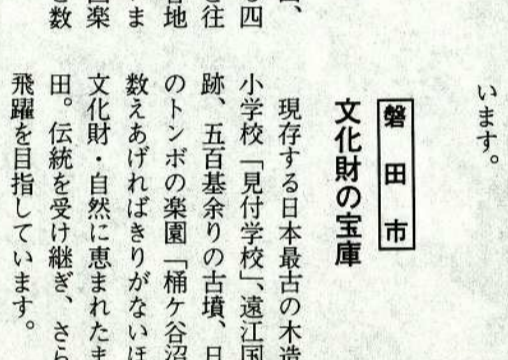 います。
磐田市
文化財の宝庫
現存する日本最古の木造
小学校「見付学校」、遠江国
跡、五百基余りの古墳、日
のトンボの楽園「桶ケ谷沼
数えあげればきりがないほ
文化財・自然に恵まれたま
田。伝統を受け継ぎ、さら
飛躍を目指しています。
四
往
地
ま
楽
数